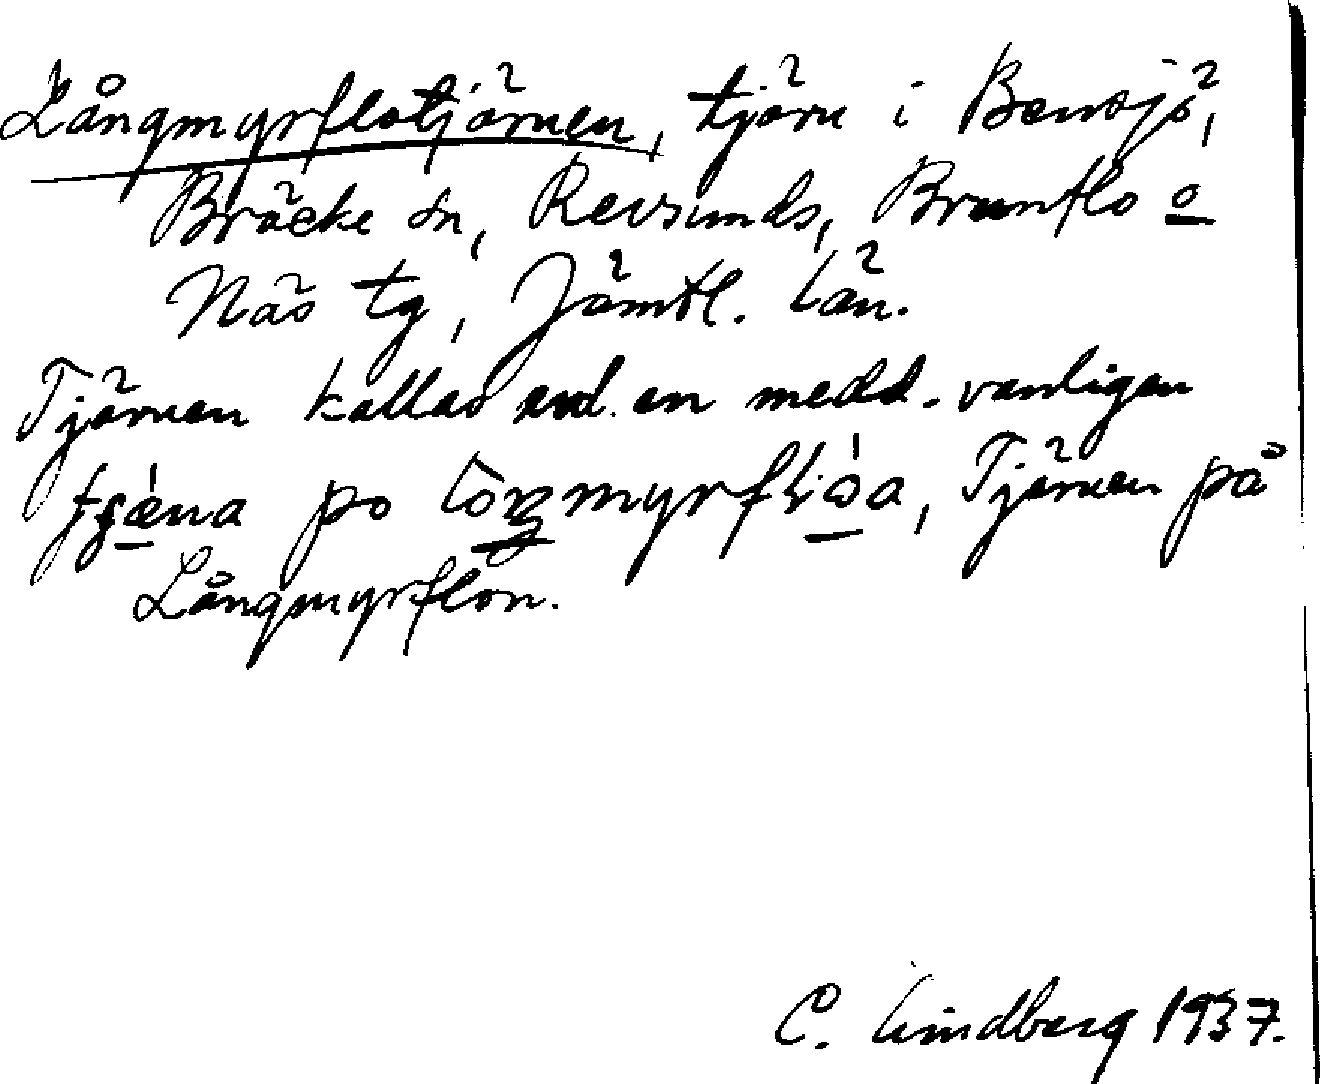 Långmyrflotjärnen, tjärn i Bensjö,
Bräcke sn, Revsunds, Brunflo o
Näs tg, Jämtl. län.
Tjärnen kallas enl. en medd. vanligen
po Tjärnen på
Långmyrflon.
C. Lindberg 1937.